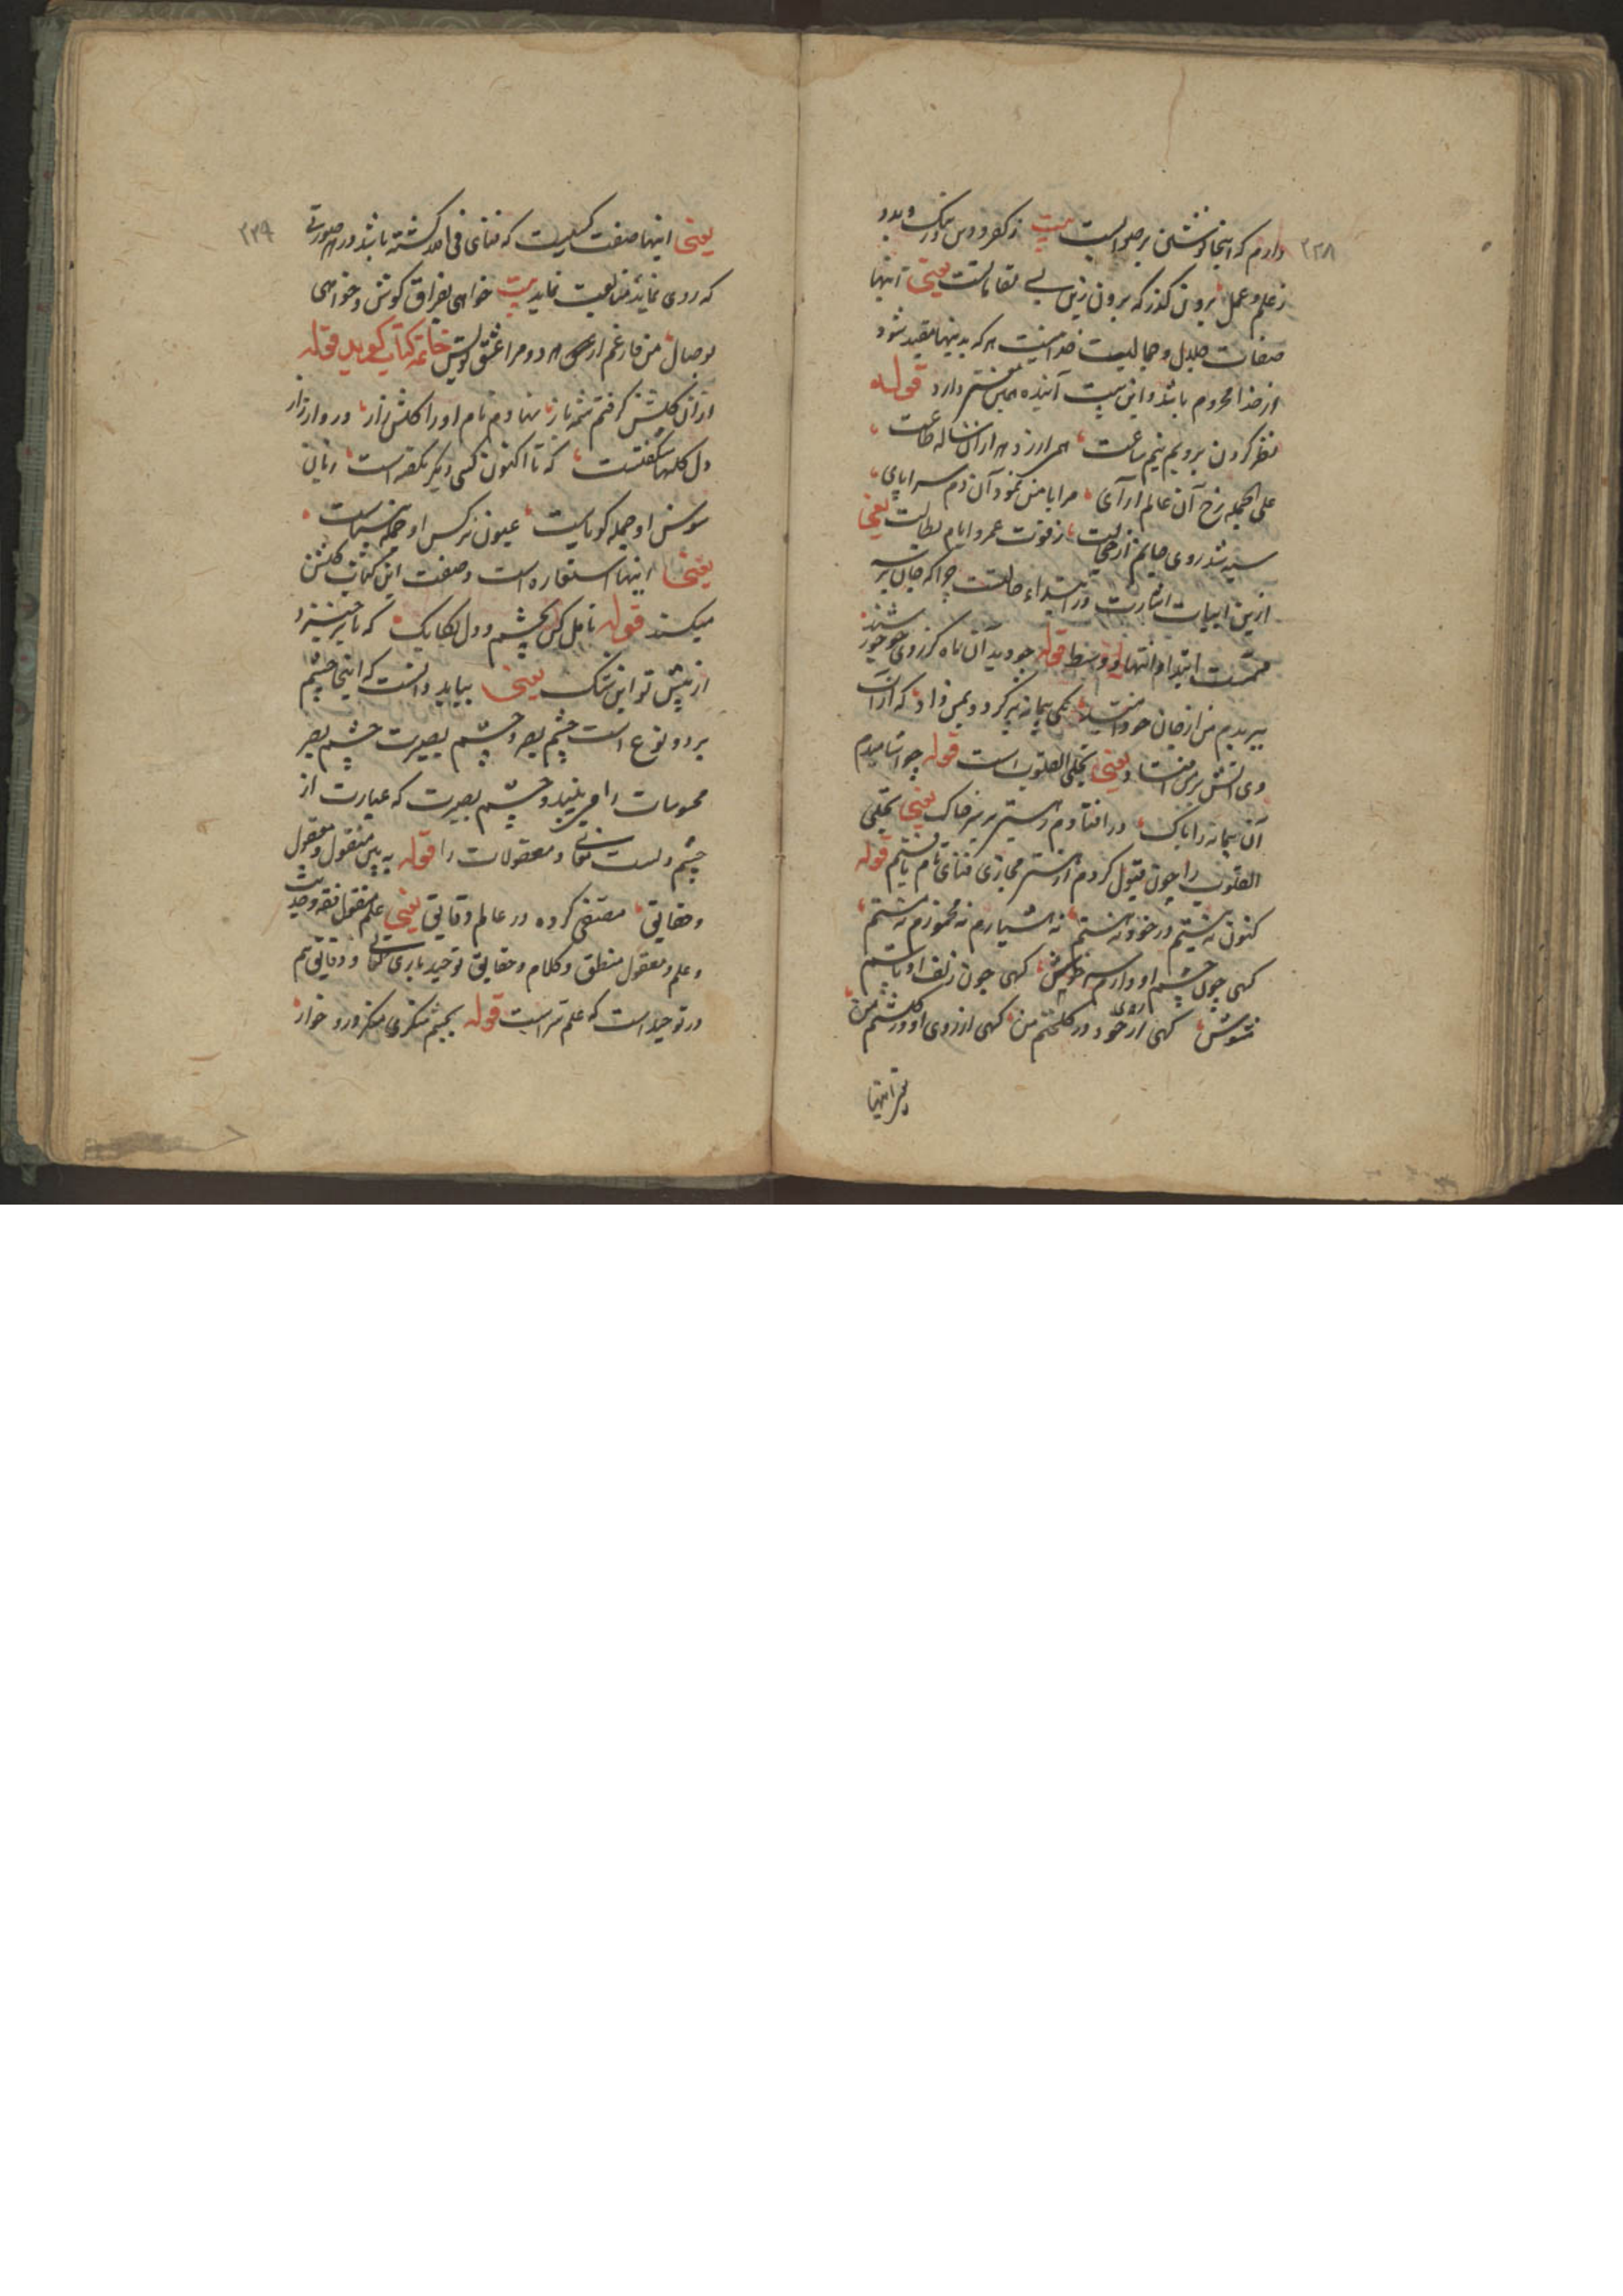 ۲۳۸
دارم که اینجا نوشتن بر صوابست بیت ز کفر و دین و از نیک و بد و
ز علم و عمل برون گذر که برون زین بسی مقاماتست یعنی اینها
صفات جلال و جمالیست خدا نیست هر که بدینها مقید شود
از خدا محروم باشد و این بیت آینده همین معنی دارد قوله
نظر کردن برویم نیم ساعت همی ارزد هزاران ساله طاعت
علی الجمله رخ آن عالم آرای مرا با من نمود آن دم سراپای
سیه شد روی جانم از خجالت ز فوت عمر و ایام بطالت یعنی
ازین ابیات اشارت در ابتداء حالتست چرا که
ابتدا و انتها و وسط قوله چو دید آن ماه کز روی چو خورشید
ببریدم من از جان خود امید یکی پیمانه پر کرد و بمن داد که از آب
وی آتش بر من افتاد یعنی تجلی القلوب است قوله چو آشامیدم
آن پیمانه را پاک در افتادم ز مستی بر سر خاک یعنی تجلی
القلوب را چون قبول کردم از هستی مجازی فنای تام یافتم قوله
کنون نه نیستم در خود نه هستم نه هشیارم نه مخمورم نه مستم
گهی چون چشم او دارم سر خوش گهی چون زلف او باشم
مشوش گهی از خوی خود در گلخنم من گهی از روی او در گلشنم من
یعنی اینها
۲۳۹
یعنی اینها صفت کسیست که فنای فی الله گشته باشد در هر صورتی
که روی نماید متابعت نماید بیت خواهی بفراق کوش و خواهی
بوصال من فارغم از هر دو مرا عشق تو بس خاتمه کتاب گوید قوله
از آن گلشن گرفتم شمه باز نهادم نام او را گلشن راز در و از راز
دل گلها شکفتست که تا اکنون کسی دیگر نگفته است زبان
سوسن او جمله گویاست عیون نرگس او جمله بیناست
یعنی اینها استعاره است و صفت این کتاب گلشن
میکند قوله تامل کن بچشم و دل یکایک که تا برخیزد
از پیش تو این شک یعنی بباید دانست که اینجا چشم
بر دو نوع است چشم بصر و چشم بصیرت چشم بصر
محسوسات را می بیند و چشم بصیرت که عبارت از
چشم دلست معانی و معقولات را قوله به بین منقول و معقول
و حقایق مصفی کرده در عالم دقایق یعنی علم منقول فقه و حدیث
و علم معقول منطق و کلام و حقایق توحید باری تعالی و دقایق هم
در توحید است که علم سر است قوله بچشم منکری منکر درو خوار